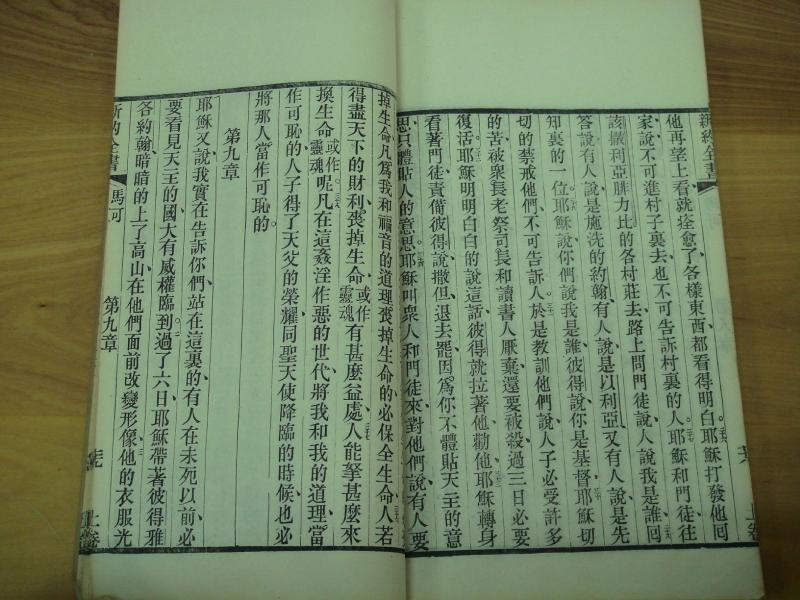 新約全書
他再望上看、就痊愈了、各樣東西都看得明白、耶穌打發他囘
家說、不可進村子裏去、也不可告訴村裏的人。耶穌和門徒往
該撒利亞腓力比的各村莊去、路上問門徒說、人說我是誰、囘
答說、有人說是施洗的約翰、有人說是以利亞、又有人說是先
知裏的一位。耶穌說、你們說我是誰、彼得說、你是基督、耶穌切
切的禁戒他們、不可告訴人。於是教訓他們說、人子必受許多
的苦、被衆長老祭司長和讀書人厭棄、還要被殺、過三日必要
復活。耶穌明明白白的說這話、彼得就拉著他勸他、耶穌轉身
看著門徒、責備彼得說、撒但、退去罷、因爲你不體貼天主的意
思、只體貼人的意思。耶穌叫衆人和門徒來、對他們說、有人要
上卷
掉生命、凡爲我和福音的道理喪掉生命的、必保全生命、人若
得盡天下的財利、喪掉生命或作靈魂有甚麽益處、人能拏甚麽來
換生命或作靈魂呢。凡在這姦淫作惡的世代、將我和我的道理、當
作可恥的、人子得了天父的榮耀、同聖天使降臨的時候、也必
將那人當作可恥的。
第九章
耶穌又說、我實在告訴你們、站在這裏的、有人在未死以前、必
要看見天主的國大有威權臨到。過了六日、耶穌帶著彼得雅
各約翰、暗暗的上了高山、在他們面前改變形像、他的衣服光
新約全書
馬可
第九章
上卷